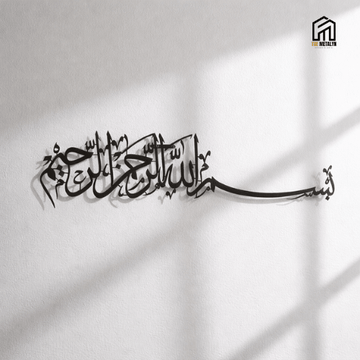 THE METALYN
بسم الله الرحمن الرحيم